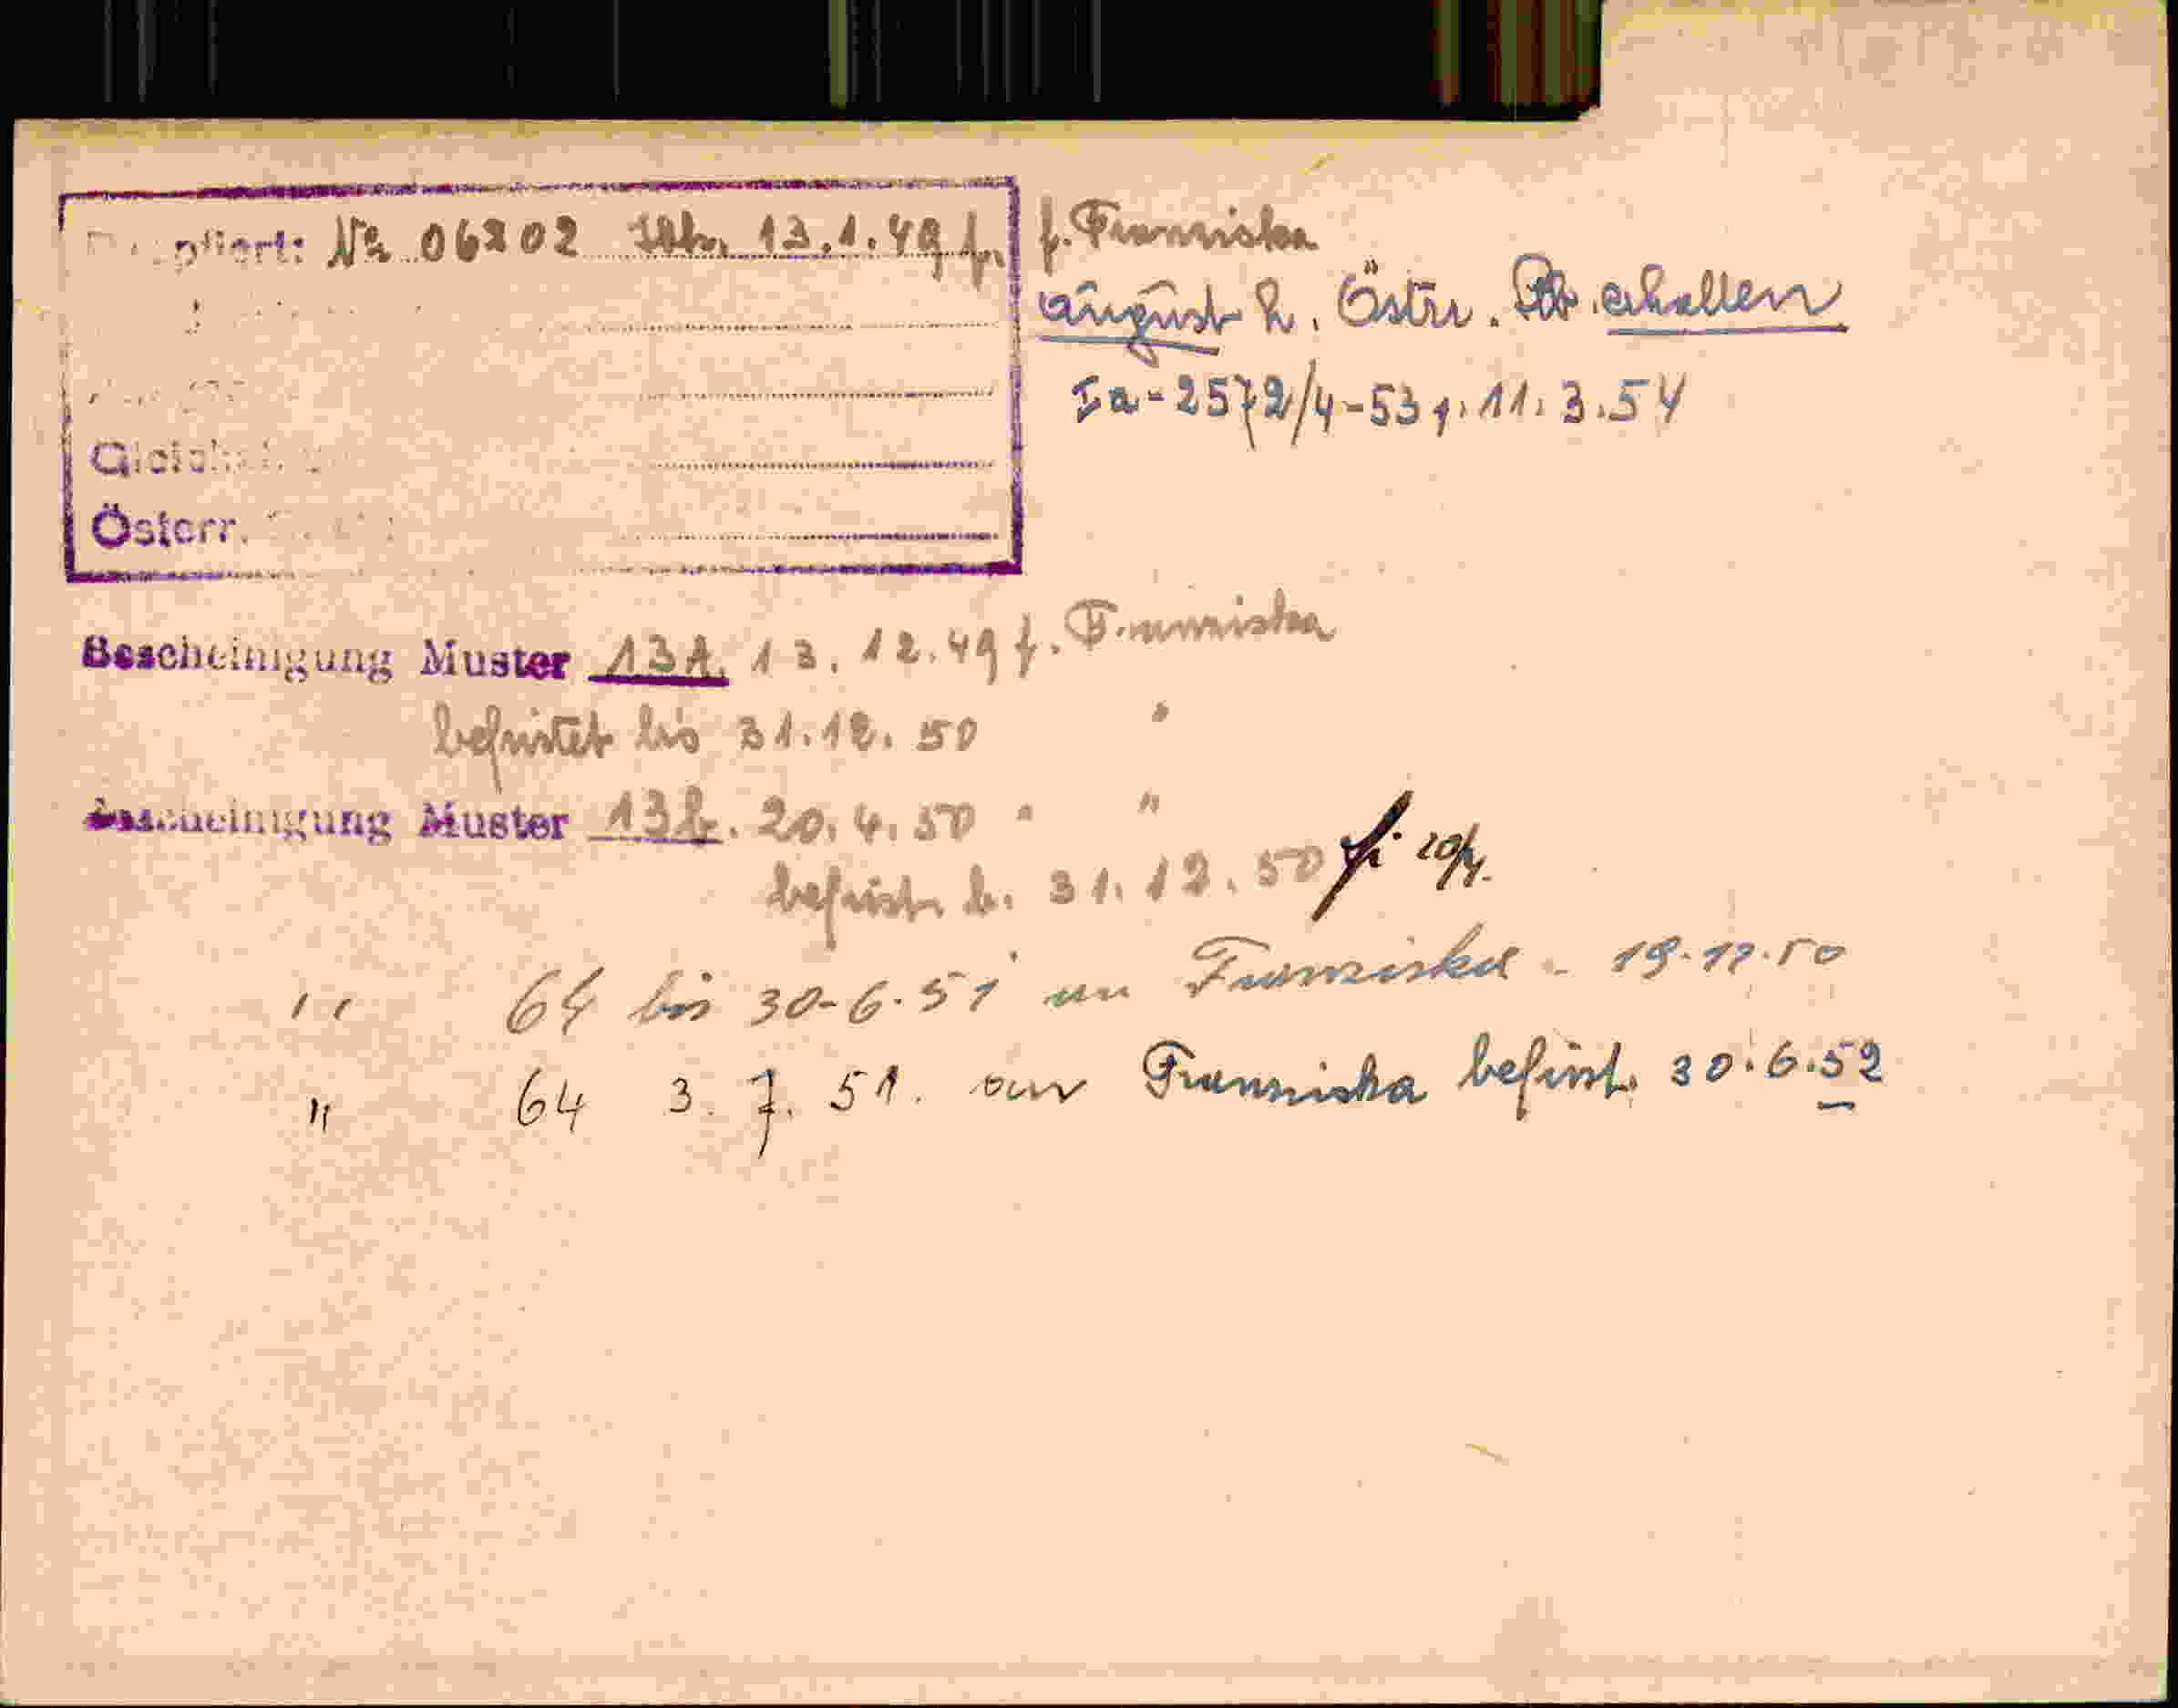 № 06202 13.1.49 f. Franziska
August h. Östr. erhalten
Ia-2572/4-53 11.3.54
Österr.
Bescheinigung Muster 13A. 13.12.49 f. Franziska
befristet bis 31.12.50 "
Bescheinigung Muster 13b. 20.4.50 " "
befrist. b. 31.12.50 20/4.
" 64 bis 30-6.51 an Franziska - 19.12.50
" 64 3.7.51. an Franziska befrist. 30.6.52